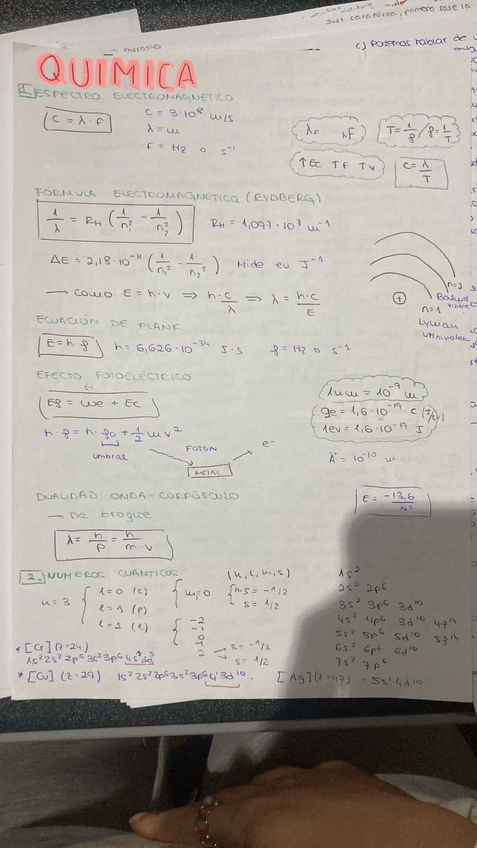 c) Podemos hablar de
QUIMICA
1. ESPECTRO ELECTROMAGNETICO
C = λ · F
C = 3·10⁸ m/s
λ = m
F = Hz o s⁻¹
T = 1/f / f = 1/T
↑Ec ↑F ↑v
C = λ/T
FÓRMULA ELECTROMAGNÉTICA (RYDBERG)
1/λ = RH (1/n₁² - 1/n₂²) RH = 1,097·10⁷ m⁻¹
(1/n₁² - 1/n₂²) Mide en J⁻¹
→ como E = h·v ⇒ h·c/λ ⇒ λ = h·c/E
n=2
Balmer
visible
n=1
Lyman
ECUACIÓN DE PLANK
E = h·f h = 6,626·10⁻³⁴ J·s f = Hz o s⁻¹
EFECTO FOTOELÉCTRICO
Ef = We + Ec
h·f = h·f₀ + 1/2 m v²
umbral
FOTON
METAL
e⁻
1nm = 10⁻⁹ m
1ev = 1,6·10⁻¹⁹ J
Å = 10⁻¹⁰ m
E = -13,6/n²
DUALIDAD ONDA-CORPÚSCULO
→ De brogue
λ = h/p = h/m·v
2. NÚMEROS CUÁNTICOS
n = 3
l=0 (s)
l=1 (p)
l=2
-2
-1
0
1
2
s = -1/2
s = 1/2
1s²
2s² 2p⁶
3s² 3p⁶ 3d¹⁰
4s² 4p⁶ 3d¹⁰ 4f¹⁴
5s² 5p⁶ 5d¹⁰ 5f¹⁴
6s² 6p⁶ 6d¹⁰
7s² 7p⁶
* [Cr] (z=24)
1s² 2s² 2p⁶ 3s² 3p⁶
* [Cu] (z=29) 1s² 2s² 2p⁶ 3s² 3p⁶ 4s¹ 3d¹⁰. [Ag] (z=47) = 5s¹ 4d¹⁰